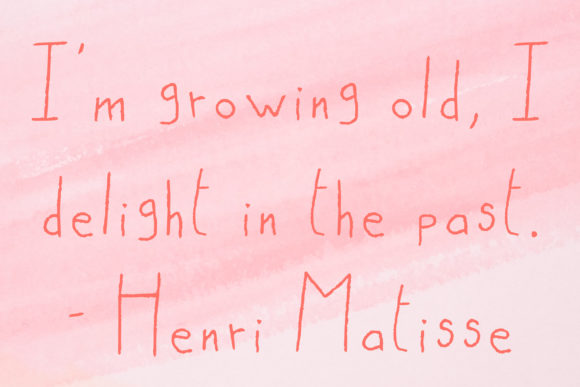 I'm growing old, I
delight in the past.
- Henri Matisse